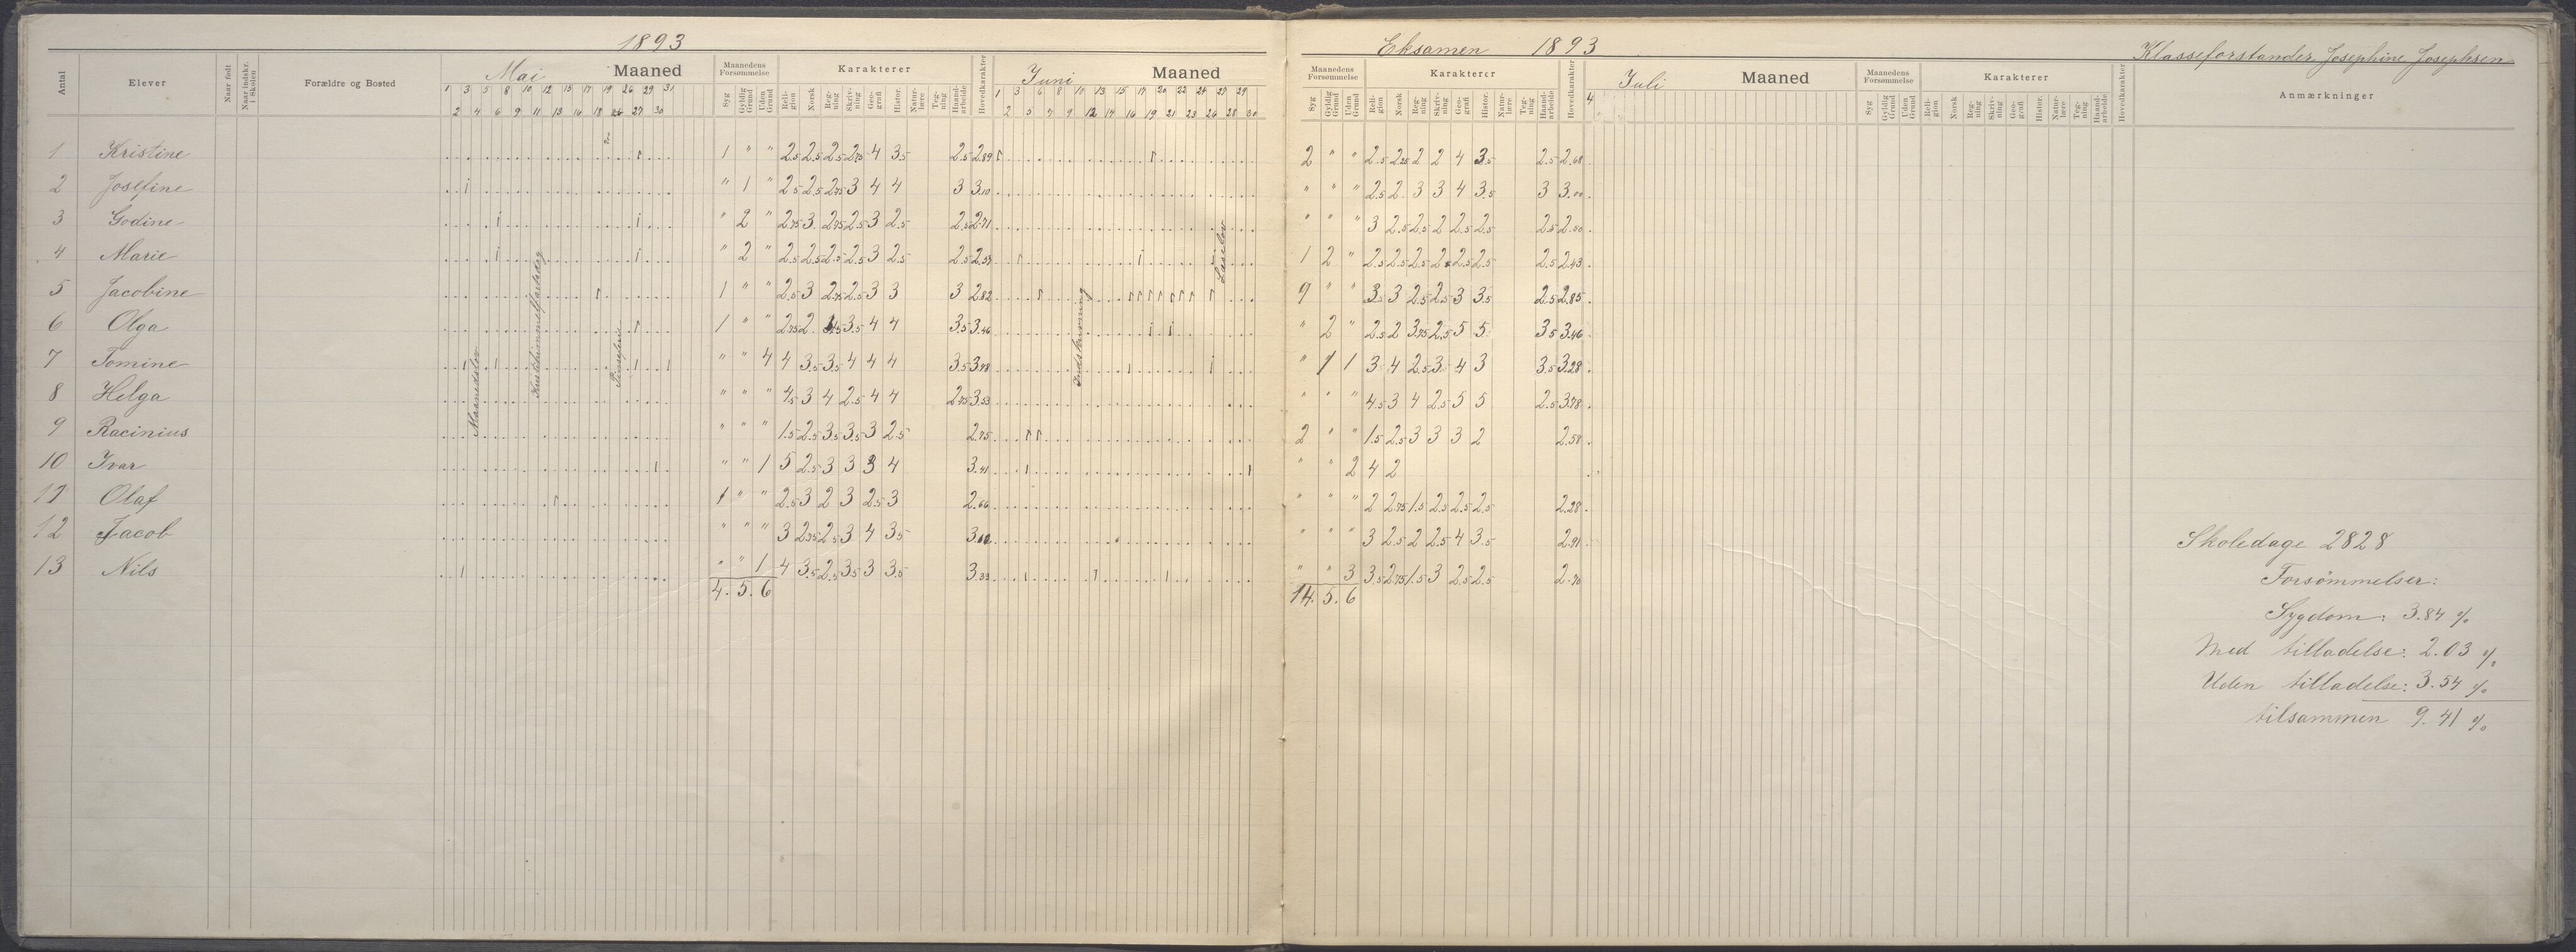 1893
Eksamen 1893
Klasseforstander Josephine Josephsen
Antal Elever Naar født Naar indskr. i Skolen Forældre og Bosted Mai Maaned Maanedens Forsømmelse Syg Gyldig Grund Uden Grund Karakterer Religion Norsk Regning Skrivning Geografi Histor. Naturlære Tegning Haandarbeide Hovedkarakter Juni Maaned
Maanedens Forsømmelse Syg Gyldig Grund Uden Grund Karakterer Religion Norsk Regning Skrivning Geografi Histor. Naturlære Tegning Haandarbeide Hovedkarakter Juli Maaned Maanedens Forsømmelse Syg Gyldig Grund Uden Grund Karakterer Religion Norsk Regning Skrivning Geografi Histor. Naturlære Tegning Haandarbeide Hovedkarakter Anmærkninger
1 3 5 8 10 12 15 17 19 26 29 31
2 4 6 9 11 13 16 18 26 27 30
1 3 6 8 10 13 15 17 20 22 24 27 29
2 5 7 9 12 14 16 19 21 23 26 28 30
4
1 Kristine 1 " " 2.5 2.5 2.5 2.75 4 3.5 2.5 2.89 2 " " 2.5 2.25 2 2 4 3.5 2.5 2.68
2 Josefine " 1 " 2.5 2.5 2.75 3 4 4 3 3.10 " " " 2.5 2 3 3 4 3.5 3 3.00
3 Godine " 2 " 2.75 3 2.75 2.5 3 2.5 2.5 2.71 " " " 3 2.5 2.5 2 2.5 2.5 2.5 2.50
4 Marie " 2 " 2.5 2.5 2.5 2.5 3 2.5 2.5 2.57 1 2 " 2.5 2.5 2.5 2 2.5 2.5 2.5 2.43
5 Jacobine 1 " " 2.5 3 2.75 2.5 3 3 3 2.82 9 " " 3.5 3 2.5 2.5 3 3.5 2.5 2.85
6 Olga 1 " " 2.75 2 3.5 4 4 3.5 3.46 " 2 " 2.5 2 3.75 2.5 5 5 3.5 3.46
7 Tomine " " 4 4 3.5 3.5 4 4 4 3.5 3.78 " 1 1 3 4 2.5 3 4 3 3.5 3.28
8 Helga " " " 4.5 3 4 2.5 4 4 2.75 3.53 " " " 4.5 3 4 2.5 5 5 2.5 3.78
9 Racinius " " " 1.5 2.5 3.5 3.5 3 2.5 2.75 2 " " 1.5 2.5 3 3 3 2 2.50
10 Ivar " " 1 5 2.5 3 3 3 4 3.41 " " 2 4 2
11 Olaf 1 " " 2.5 3 2 3 2.5 3 2.66 " " " 2 2.75 1.5 2.5 2.5 2.5 2.28
12 Jacob " " " 3 2.75 2.5 3 4 3.5 " " " 3 2.5 2 2.5 4 3.5 2.91
13 Nils " " 1 4 3.5 2.5 3.5 3 3.5 3.33 " " 3 3.5 2.75 1.5 3 2.5 2.5 2.70
4. 5. 6
14. 5. 6
Maanedslov
Kristihimmelfartsdag
Pinseferie
Indskrivning
Læselov
Skoledage 2828
Forsømmelser:
Sygdom: 3.84 %
Med tilladelse: 2.03 %
Uden tilladelse: 3.54 %
tilsammen 9.41 %